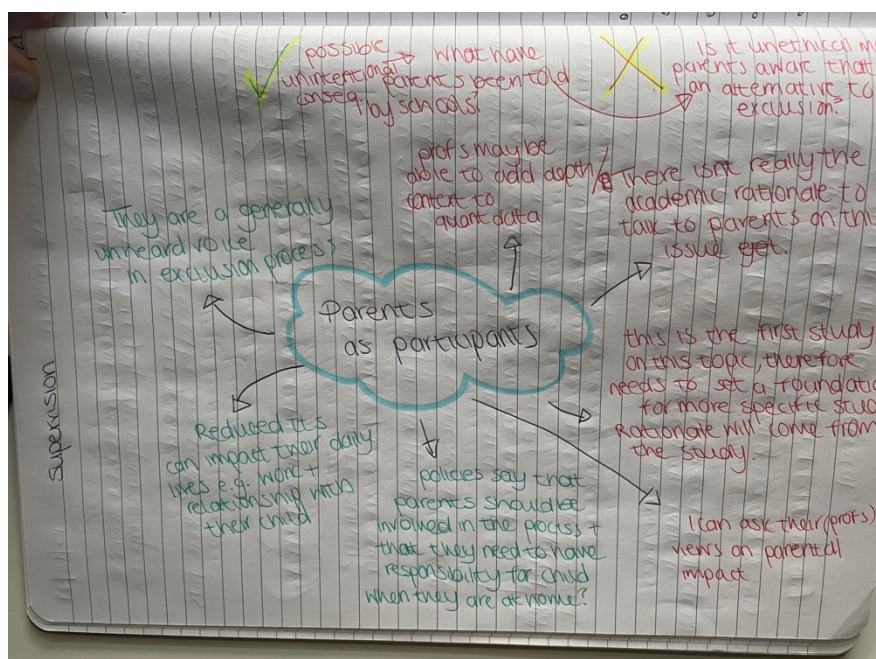 possible
unintentional
conseq.
what have
parents been told
by schools?
Is it unethical m
parents aware that
an alternative to
exclusion?
profs may be
able to add depth/
context to
quant data
There isnt really the
academic rationale to
talk to parents on thi
issue yet.
They are a generally
unheard voice
in exclusion process
Parents
as participants
this is the first study
on this topic, therefore
needs to set a foundatio
for more specific stud
Rationale will come from
the study.
Reduced TTs
can impact their daily
lives e.g. work +
relationship with
their child
policies say that
parents should be
involved in the process +
that they need to have
responsibility for child
when they are at home?
I can ask their (profs)
views on parental
impact
supervision